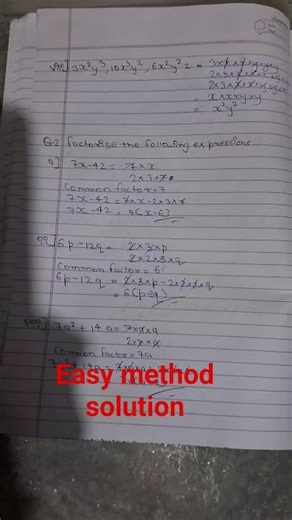 3x²y³, 10x³y², 6x²y²z = 3×x×x×y×y×y
2×5×x×x×x×y×y
2×3×x×x×y×y×z
= x×x×y×y
= x²y²
Q.2 factorise the following expressions
7x-42 = 7×x
2×3×7
Common factor=7
7x-42=7×x-2×3×7
7x-42=7(x-6)
6p-12q = 2×3×p
2×2×3×q
Common factor = 6
6p-12q = 2×3×p-2×2×3×q
=6(p-2q)
7a²+14a=7×a×a
2×7×a
Common factor=7a
Easy method
solution